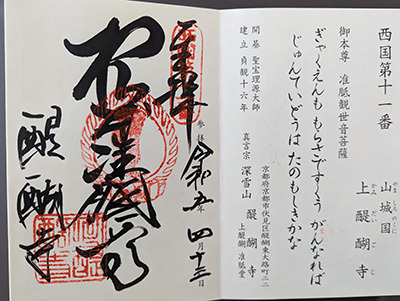 西国第十一番
山城国
やましろのくに
上醍醐寺
かみだいごじ
御本尊 准胝観世音菩薩
ぎゃくえんも もらさですくう がんなれば
じゅんていどうは たのもしきかな
開基 聖宝理源大師
建立 貞観十六年
京都府京都市伏見区醍醐東大路町二二
真言宗 深雪山 醍醐寺
上醍醐 准胝堂
奉拝
参拝 令和五年四月十三日
醍醐寺